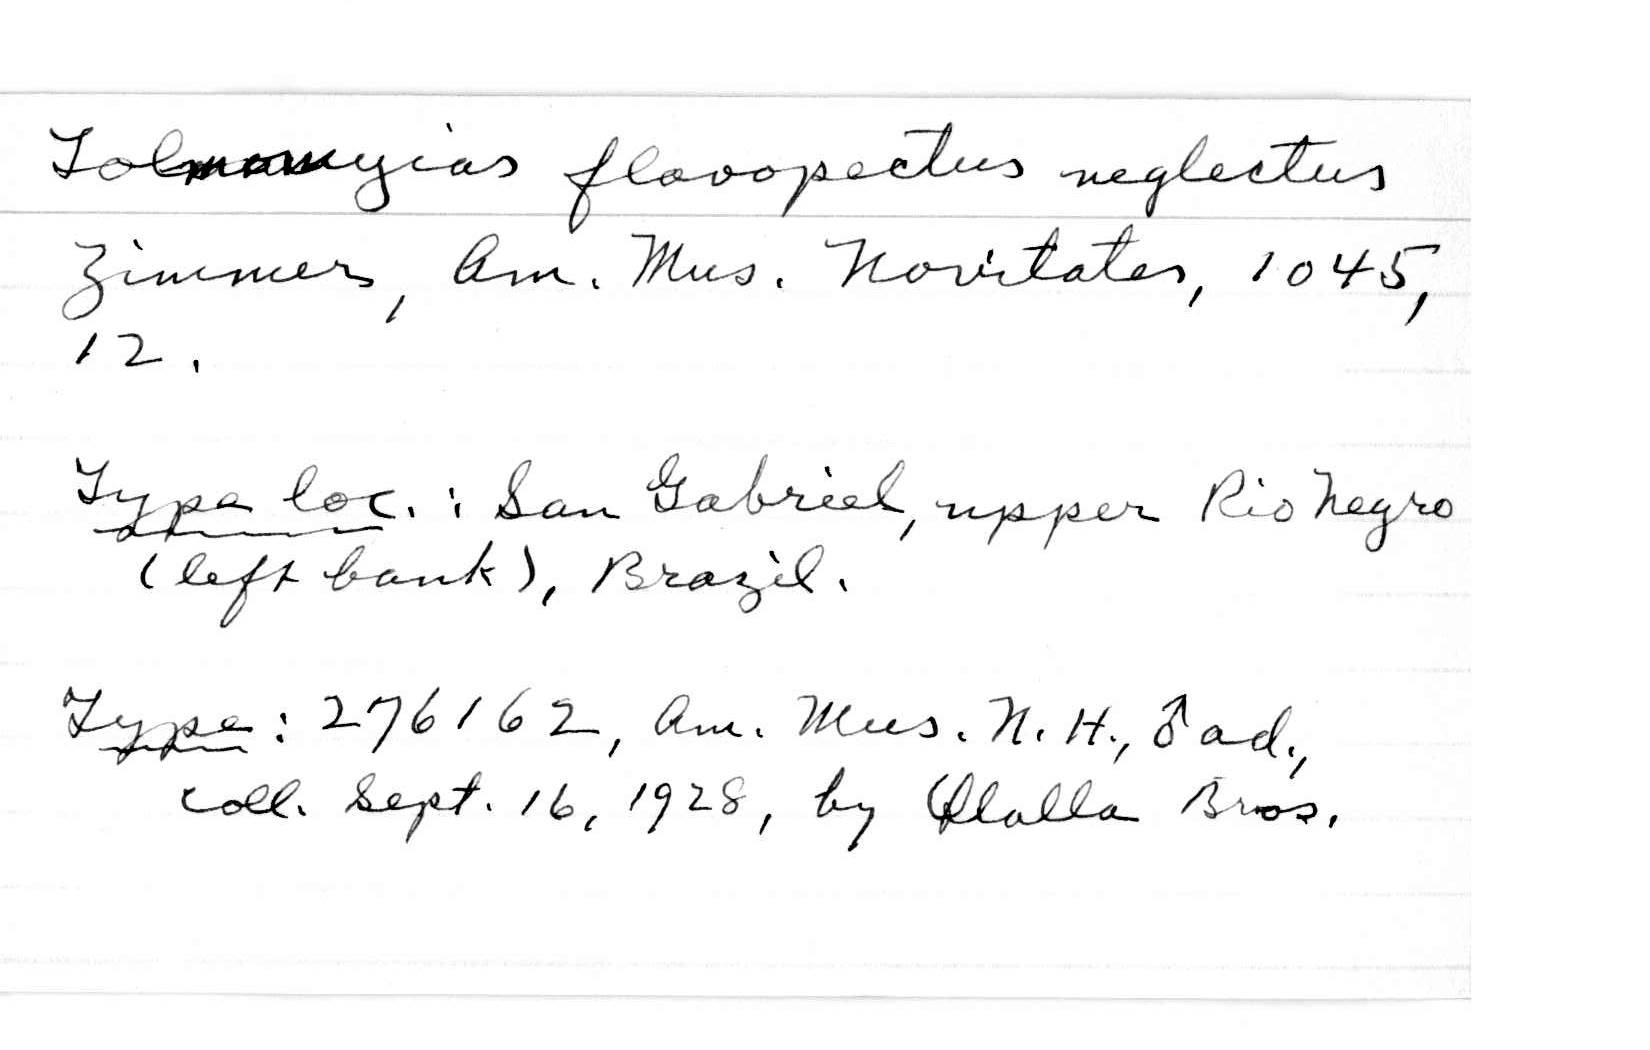 Tolmomyias flavopectus neglectus
Zimmer, Am. Mus. Novitates, 1045,
12.
Type loc.: San Gabriel, upper Rio Negro
(left bank), Brazil.
Type: 276162, Am. Mus. N. H., ♂ ad.,
coll. Sept. 16, 1928, by Olalla Bros.